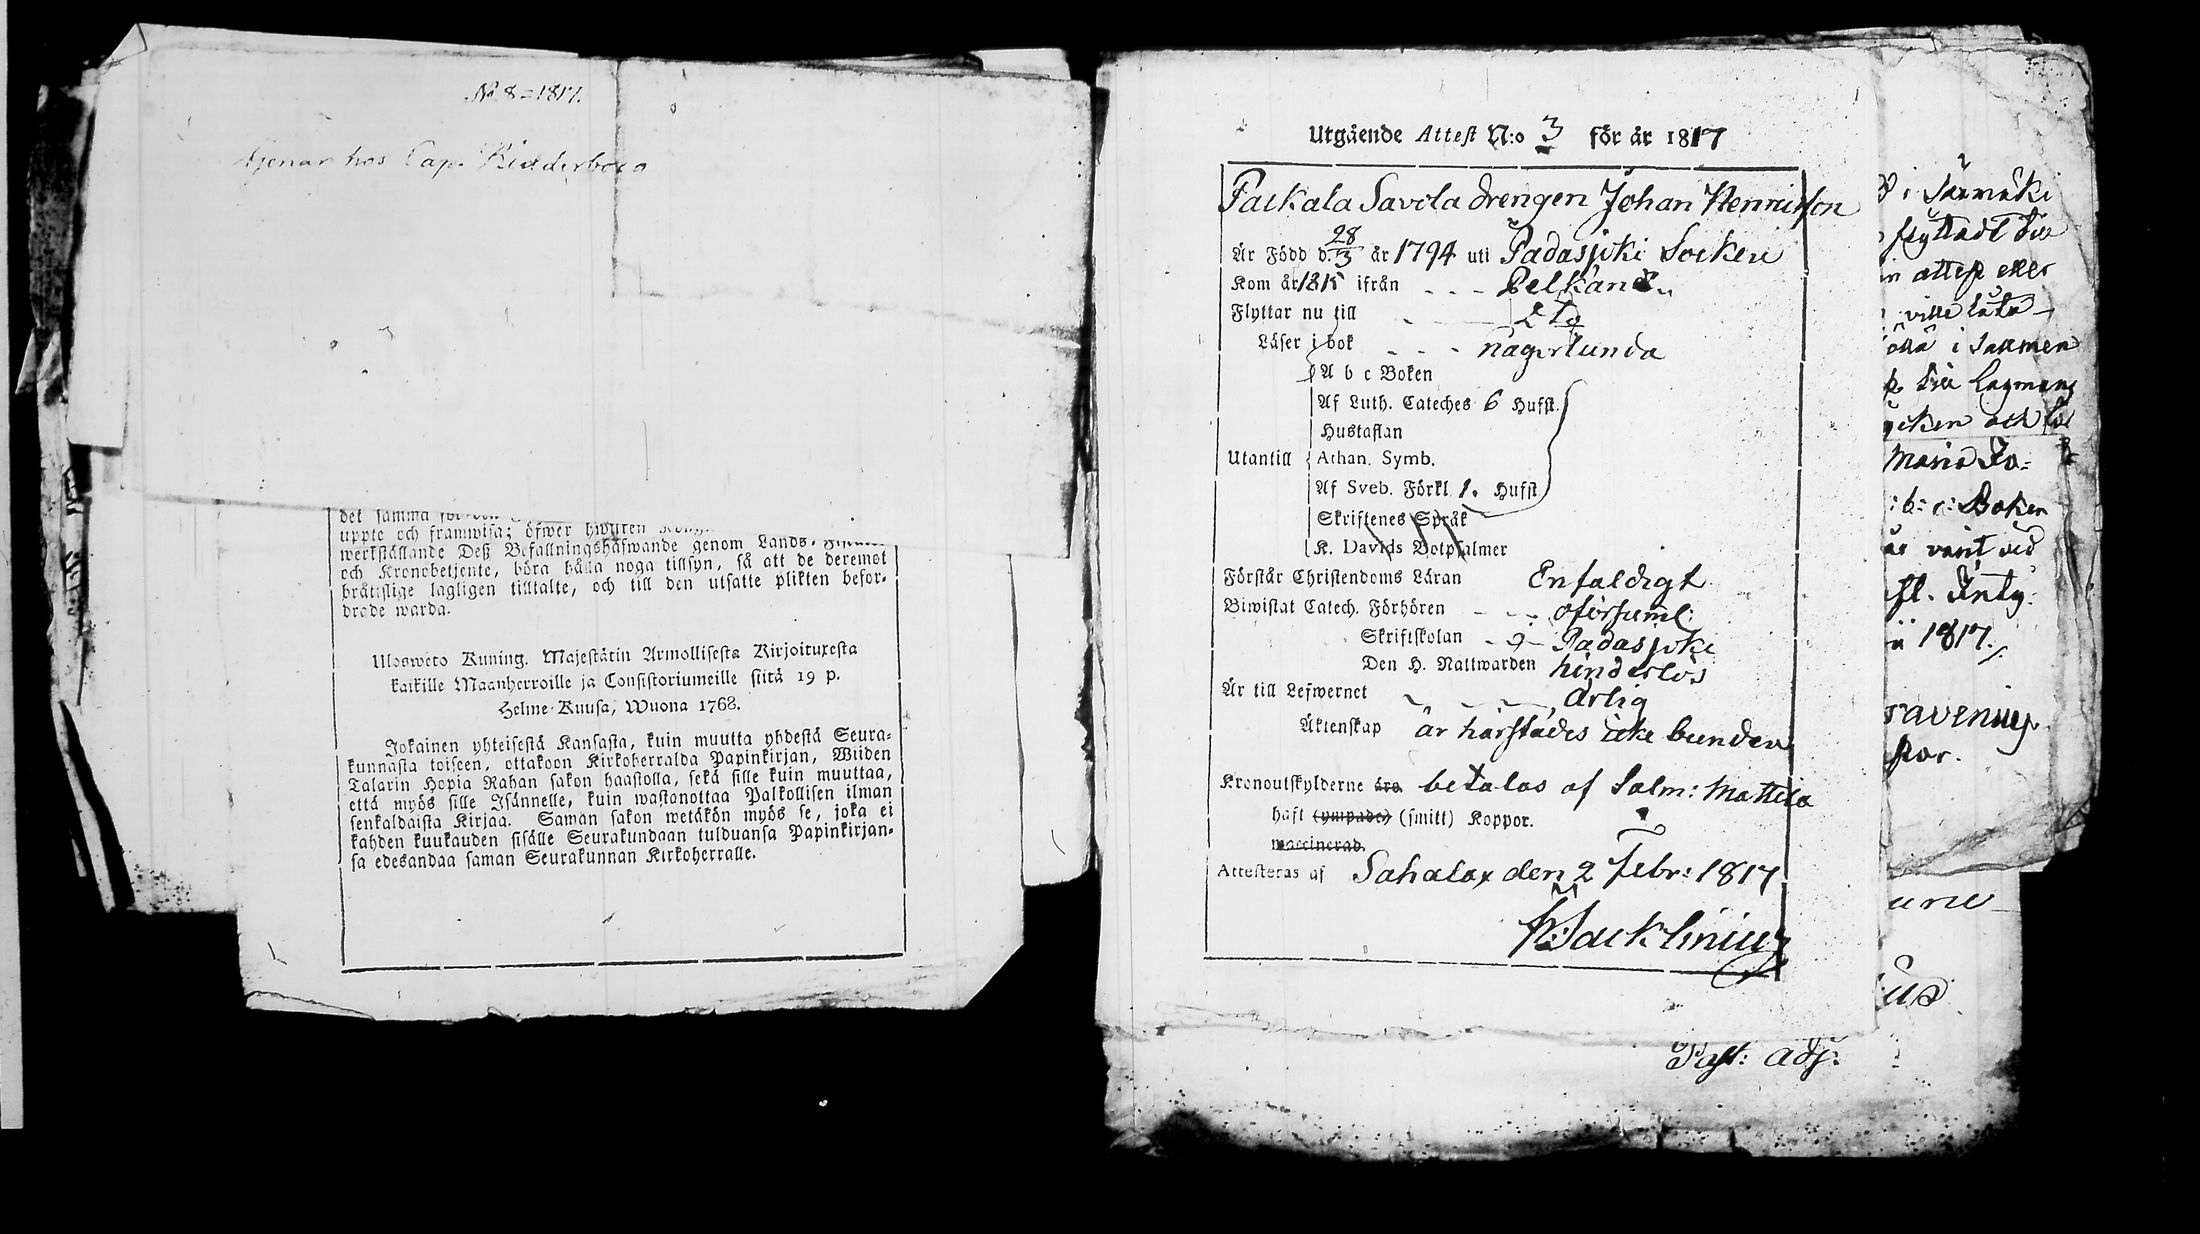 No 8 = 1817.
tjenar hos Cap. Ridderborg
det samma
uppte och framwisa; öfwer hwilken
werkställande Deß Befallningshafwande genom Lands-
och Kronobetjente, böra hålla noga tillsyn, så att de deremot
bråttslige lagligen tilltalte, och till den utsatte plikten befor-
drade warda.
Ulosweto Kuning. Majestätin Armollisesta Kirjoituxesta
kaikille Maanherroille ja Consistoriumeille siitä 19 p.
Helme-Kuusa, Wuona 1768.
Jokainen yhteisestä Kansasta, kuin muutta yhdestä Seura-
kunnasta toiseen, ottakoon Kirkoherralda Papinkirjan, Wiiden
Talarin Hopia Rahan sakon haastolla, sekä sille kuin muuttaa,
että myös sille Isännelle, kuin wastanottaa Palkollisen ilman
senkaldaista Kirjaa. Saman sakon wetäkön myös se, joka ei
kahden kuukauden sisälle Seurakundaan tulduansa Papinkirjan-
sa edesandaa saman Seurakunnan Kirkoherralle.
Utgående Attest N:o 3 för år 1817
Packala Savola drengen Johan Henricsson
Är Född d. 28/3 år 1794 uti Padasjoki Socken
Kom år 1815 ifrån - - - Pelkäne
Flyttar nu till - d:o
Läser i bok - - - någorlunda
A b c Boken
Af Luth. Cateches 6 Hufst.
Hustaflan
Utantill Athan. Symb.
Af Sveb. Förkl 1. Hufst
Skriftenes Språk
K. Davids Botpsalmer
Förstår Christendoms Läran Enfaldigt
Biwistat Catech. Förhören - - - oförsuml:
Skriftskolan - i - Padasjoki
Den H. Nattwarden hinderlös
Är till Lefwernet - - - ärlig
Äktenskap är härstädes icke bunden
Kronoutskylderne äro betalas af Salm: Mattila
haft (ympade) (smitt) Koppor.
waccinerad.
Attesteras af Sahalax den 2 Febr: 1817
Sacklinius
i Sarmäki
flyttadt
attest eller
ville låta
i
Lagmans
och
Maria Jo=
:b:c: Boken
varit wid
Intÿ:
1817.
por.
Past: adj: